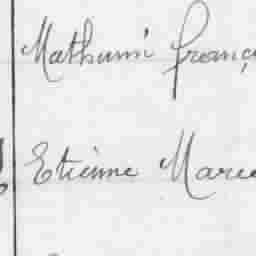 Mathurin franço
Etienne Marce